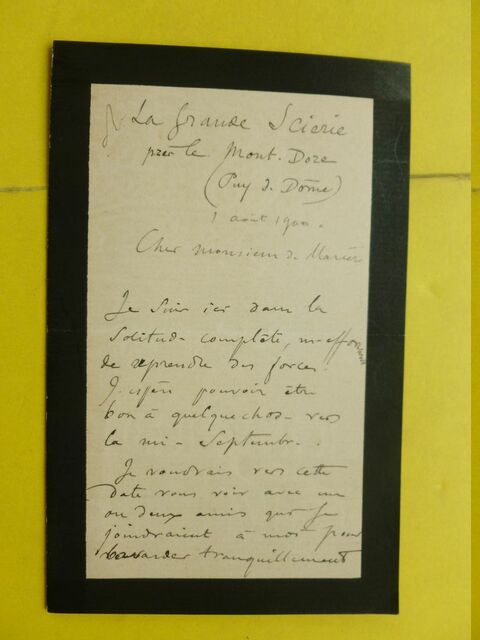 La Grande Scierie
près le Mont-Dore
(Puy de Dôme)
1 août 1900.
Cher monsieur de
Je suis ici dans la
solitude complète, m'efforçant
de reprendre des forces.
J'espère pouvoir être
bon à quelque chose vers
la mi-Septembre.
Je voudrais vers cette
date vous voir avec un
ou deux amis qui se
joindraient à moi pour
bavarder tranquillement